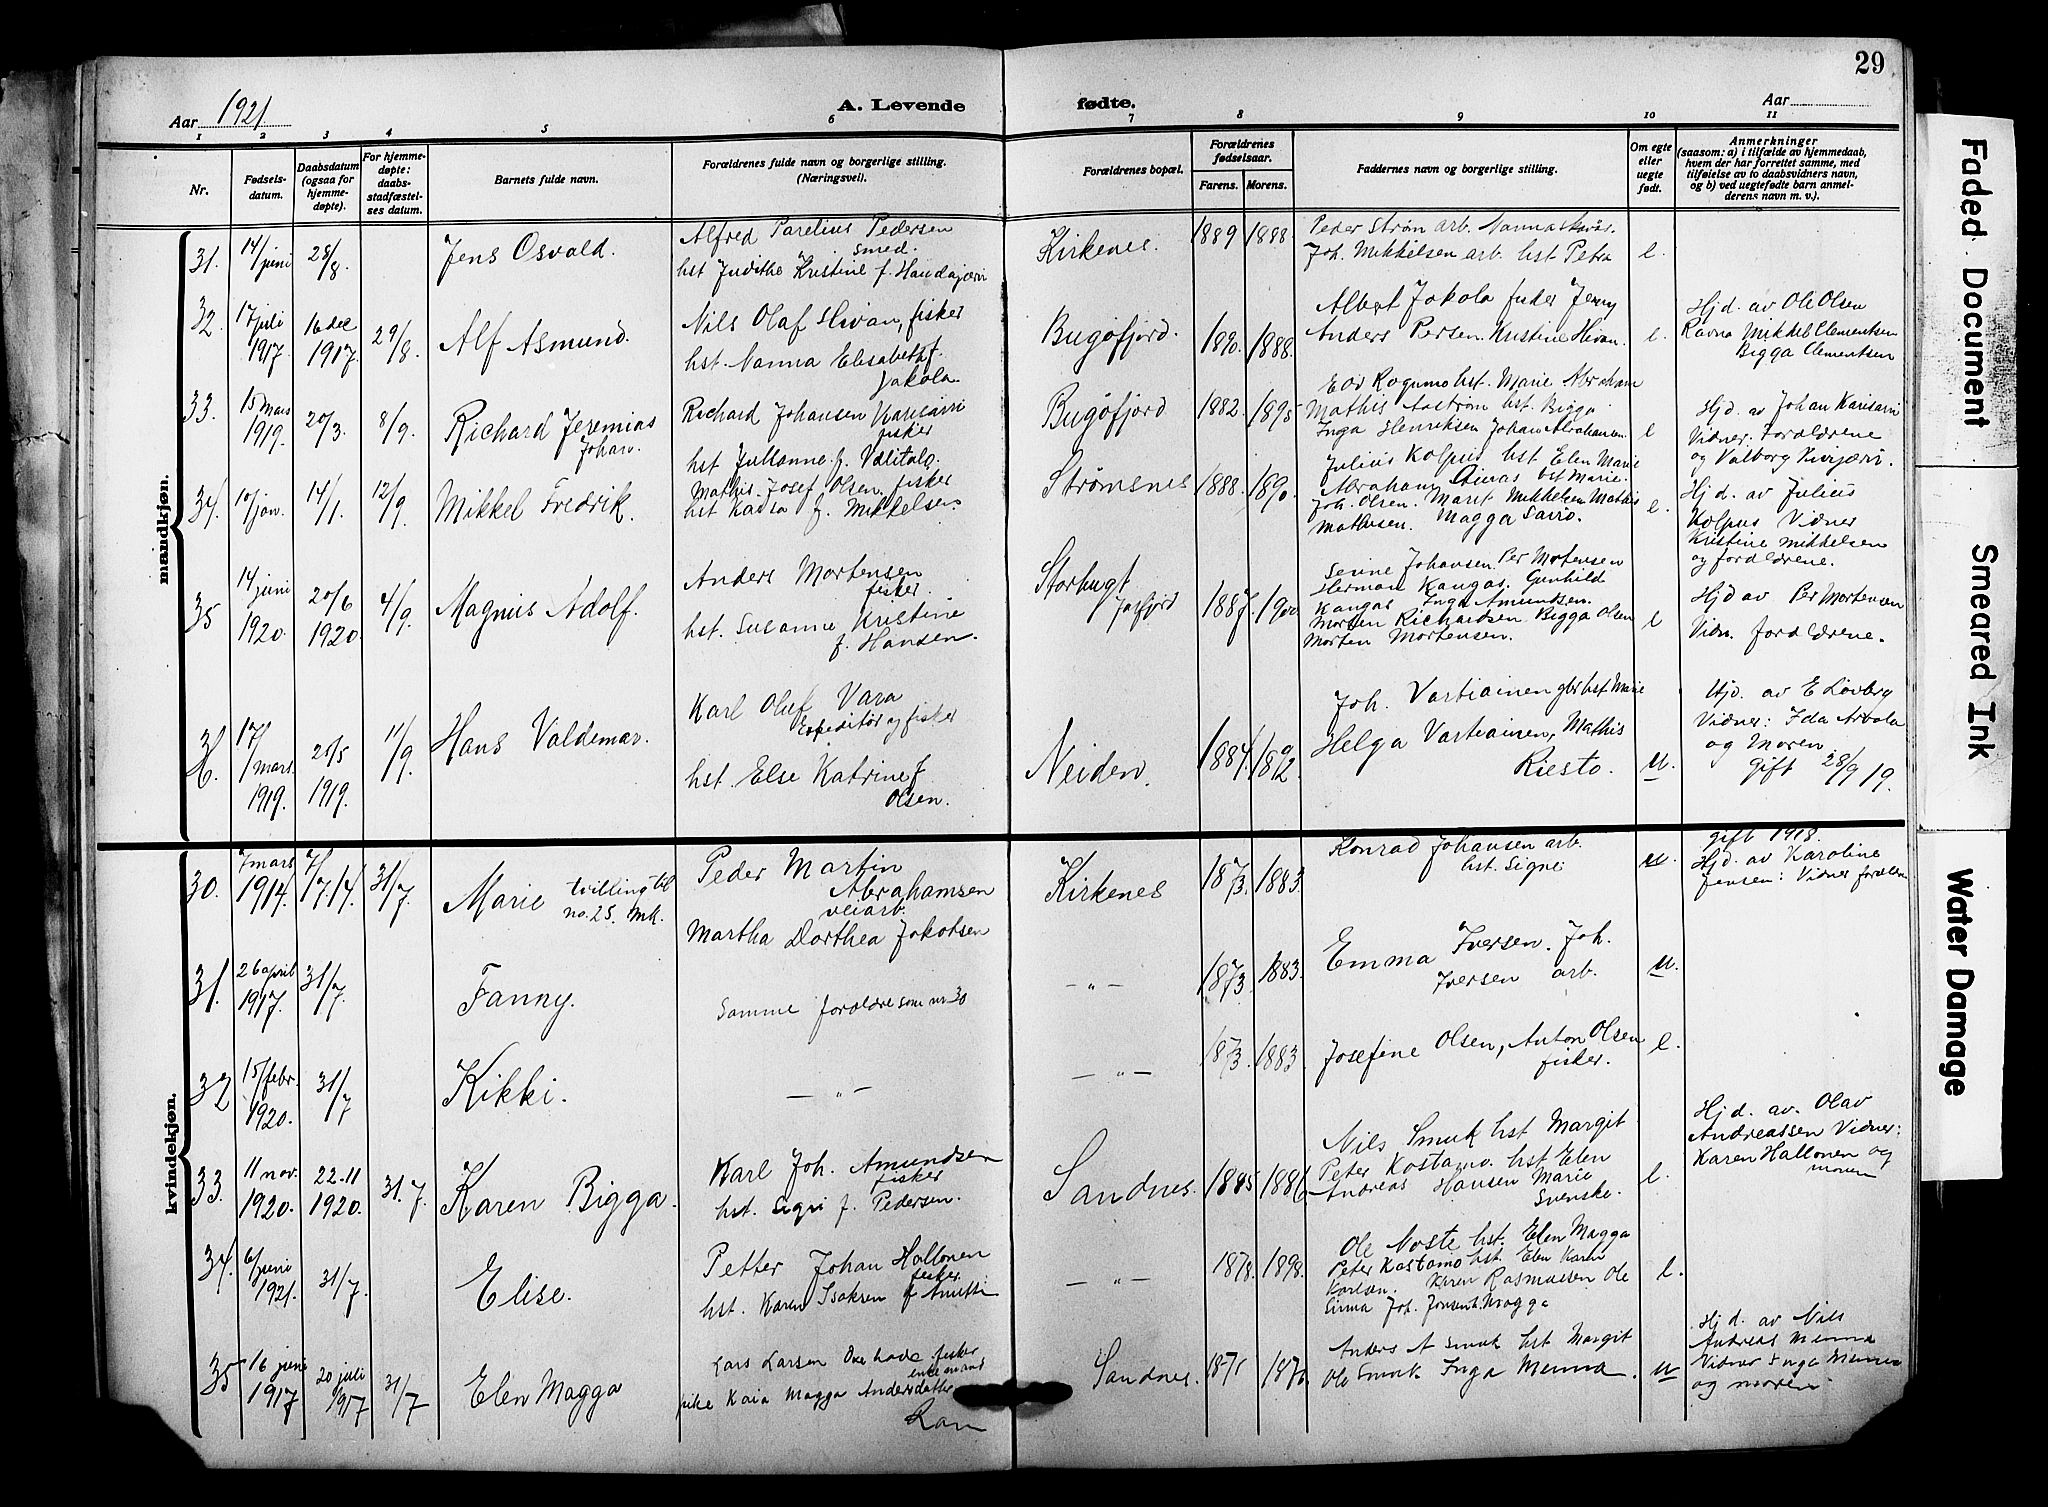 29
Aar 1921
A. Levende
fødte.
Aar
1 2 3 4 5 6 7 8 9 10 11
Nr.
Fødsels-
datum.
Daabsdatum
(ogsaa for
hjemme-
døpte).
For hjemme-
døpte:
daabs-
stadfæstel-
ses datum.
Barnets fulde navn.
Forældrenes fulde navn og borgerlige stilling.
(Næringsvei).
Forældrenes bopæl.
Forældrenes
fødselsaar.
Farens. Morens.
Faddernes navn og borgerlige stilling.
Om egte
eller
uegte
født.
Anmerkninger
(saasom: a) i tilfælde av hjemmedaab,
hvem der har forrettet samme, med
tilføielse av to daabsvidners navn,
og b) ved uegtefødte barn anmel-
derens navn m. v.).
mandkjøn.
31. 14/juni 28/8. Jens Osvald.
Alfred Parelius Pedersen
Smed.
hst Judithe Kristine f. Haudajærvi
Kirkenes. 1889 1888.
Peder Strøm arb. Nanna
Joh. Mikkelsen arb. hst Petra
e.
32. 17 juli 1917. 16 dec 1917. 29/8. Alf Asmund.
Nils Olaf Hivan, fisker
hst. Nanna Elisabeth f.
Jakola.
Bugøfjord. 1890. 1888.
Albert Jakola Jenny
Anders Persen Kristine Hivan.
e.
Hjd. av Ole Olsen
Ravna Mikkel Clementsen
Bigga Clementsen
33. 15 mars 1919. 20/3. 8/9. Richard Jeremias
Johan.
Richard Johansen Karisarri
fisker
hst Julianne f. Vælitalo.
Bugøfjord 1882. 1895
hst. Marie Abraham
Mathis hst. Bigga
Inga Henriksen Johan Abrahamsen.
e
Hjd. av Johan Karisarri
Vidner. Forældrene
og Valborg
34. 10/jan. 14/1. 12/9. Mikkel Fredrik.
Mathis Josef Olsen. fisker
hst Kaisa f. Mikkelsen
Strømsnes 1888. 1890.
Julius Kolpus hst Elen Marie
Abraham hst Marie.
Joh. Olsen. Maret Mikkelsen Mathis
Mathisen. Magga Savio.
e.
Hjd. av Julius
Kolpus Vidner
Kristine Mikkelsen
og forældrene.
35 14 juni 1920. 20/6 1920. 4/9. Magnus Adolf.
Anders Mortensen
fisker.
hst. Susanne Kristine
f. Hansen.
Storbugt
Jarfjord
1887. 1900
Johansen. Per Mortensen
Herman Kangas. Gunhild
Kangas Inga Amundsen.
Morten Richardsen. Bigga Olsen
Morten Mortensen.
e
Hjd av Per Mortensen
Vidn. forældrene.
36. 17/mars. 1919. 25/5 1919. 11/9. Hans Valdemar.
Karl Oluf Vara
Expeditør og fisker
hst. Else Katrine f.
Olsen.
Neiden. 1884. 1892
Joh. Vartiainen gbr. hst. Marie
Helga Vartiainen, Mathis
Riesto.
u.
Hjd. av E Lovberg
Vidner: Ida Arvola
og moren.
gift 28/9 19.
kvindekjøn.
30. 7 mars 1914. 7/7.14. 31/7. Marie tvilling til
no. 25. mk.
Peder Martin
Abrahamsen
veiarb.
Martha Dorthea Jakobsen
Kirkenes 1873. 1883.
Konrad Johansen arb.
hst. Signe
u.
gift 1918.
Hjd. av Karoline
Jensen: Vidner forældr
31. 26 april 1917. 31/7. Fanny.
Samme forældre som nr 30
— „ —
1873. 1883.
Emma Iversen. Joh.
Iversen arb.
u.
32 15/febr. 1920. 31/7 Kikki.
— „ —
— „ —
1873. 1883.
Josefine Olsen, Anton Olsen
fisker.
e.
33. 11 nov. 1920. 22.11 1920. 31.7. Karen Bigga.
Karl Joh. Amundsen
fisker
hst. Sigri f. Pedersen.
Sandnes. 1885 1886.
Nils Smuk hst Margit
Peter Kostamo. hst Elen
Andreas Hansen Marie
Svenske.
e.
Hjd. av. Olav
Andreassen Vidner:
Karen Hallonen og
moren
34. 6/juni 1921. 31/7. Elise.
Petter Johan Hallonen
fisker.
hst. Karen Isaksen f
— „ —
1878. 1898.
Ole Noste hst. Elen Magga
Peter Kostamo hst. Elen Karen
Karlsen. Karen Rasmussen Ole
Sirma Joh. Jonsen h. Magga
e.
35 16 juni 1917 20 juli 1917 31/7 Elen Magga
Lars Larsen fisker
enkemand
pike Kaia Magga Andersdatter
Sandnes. 1871 1870.
Anders A Smuk hst Margit
Ole Smuk Inga Menna.
u
Hjd. av Nils
Andreas Menna
Vidner Inga Menna
og moren
Faded Document
Smeared Ink
Water Damage